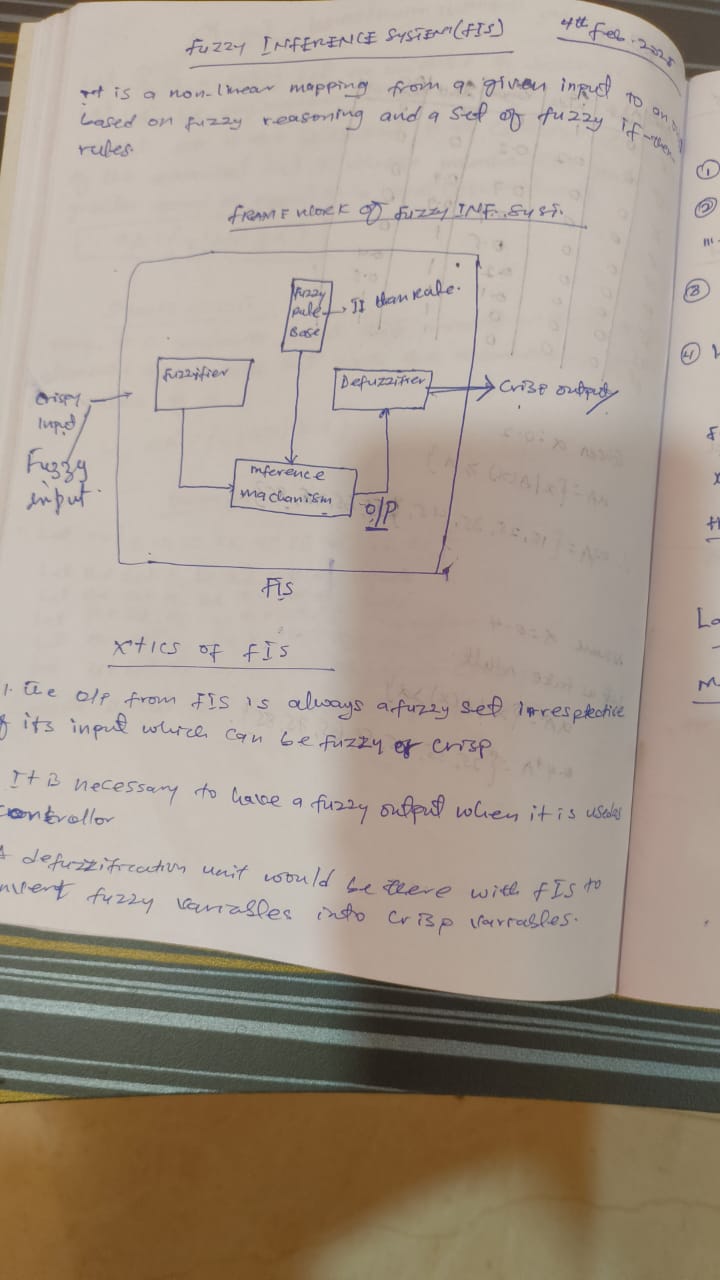 fuzzy INFERENCE SYSTEM (FIS)
4th Feb. 2025
It is a non-linear mapping from a given input to an
based on fuzzy reasoning and a set of fuzzy if-then
rules.
FRAMEWORK OF FUZZY INF. Syst.
fuzzy
rule
Base
If than rule.
fuzzifier
Defuzzifier
Crisp output
Crispy
Input
Fuzzy
input.
Inference
machanism
O/P
FIS
①
②
③
④
xtics of FIS
1. The O/P from FIS is always a fuzzy set irrespective
its input which can be fuzzy or crisp
It is necessary to have a fuzzy output when it is used as
controllor
A defuzzification unit would be there with FIS to
fuzzy variables into crisp variables.